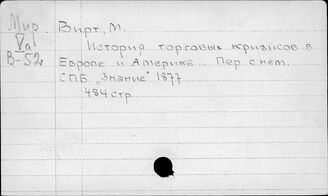 Мир
Va
В-52
Вирт, М.
История торговых кризисов в
Европе и Америке... Пер с нем.
СПБ „Знание" 1877
484 стр.